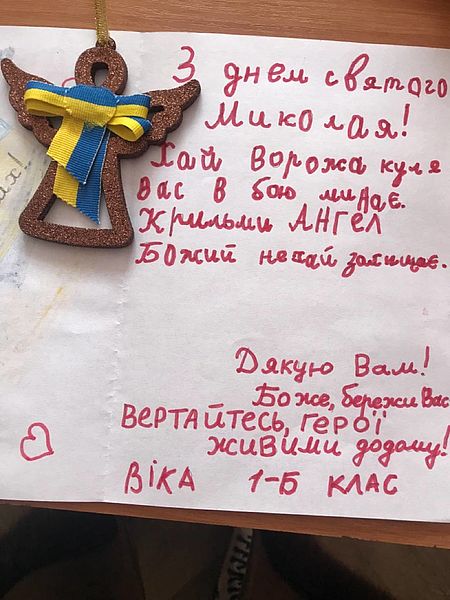 З днем святого
Миколая!
Хай ворожа куля
вас в бою минає.
Крильми АНГЕЛ
Божий нехай захищає.
Дякую Вам!
Боже, бережи Вас
ВЕРТАЙТЕСЬ, ГЕРОЇ
живими додому!
ВІКА 1-Б КЛАС